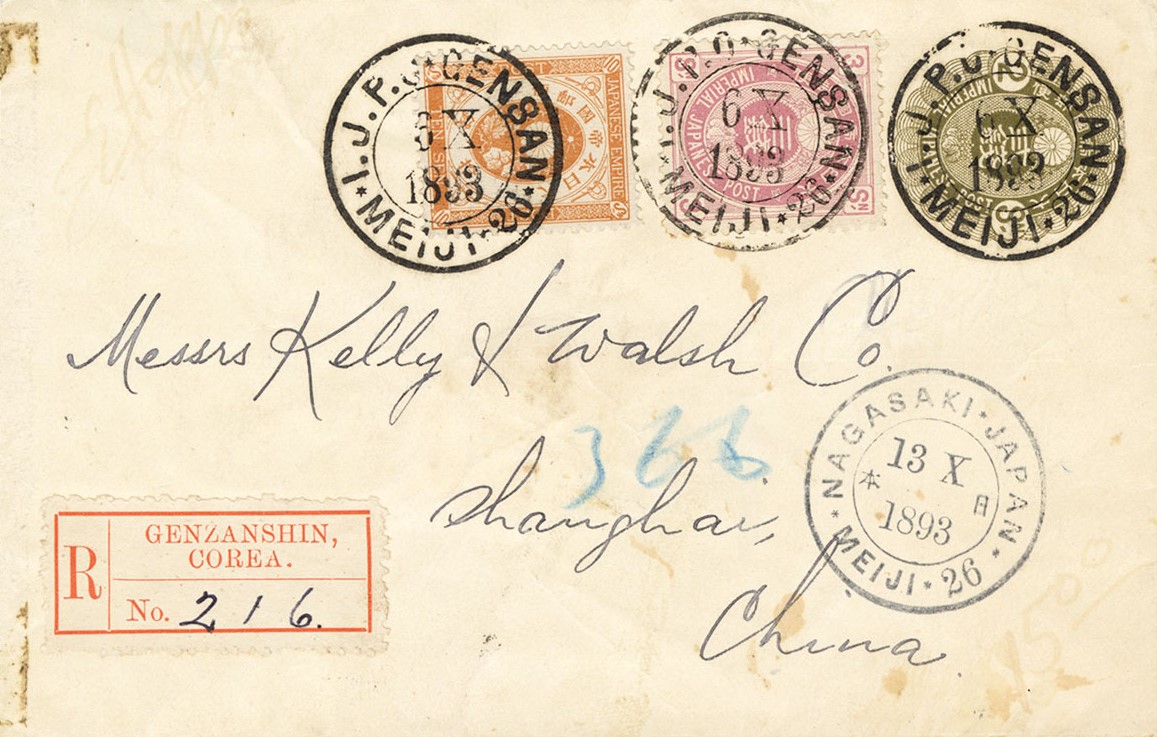 I.J.P.O·GENSAN
6 X
1893
MEIJI·26
JAPANESE EMPIRE
10
I.J.P.O·GENSAN
6 X
1893
MEIJI·26
IMPERIAL JAPANESE POST
3 Sn
I.J.P.O·GENSAN
6 X
1893
MEIJI·26
Messrs Kelly & Walsh Co.
366
Shanghai,
China
NAGASAKI·JAPAN
13 X
本 日
1893
MEIJI·26
R
GENZANSHIN,
COREA.
No. 216.